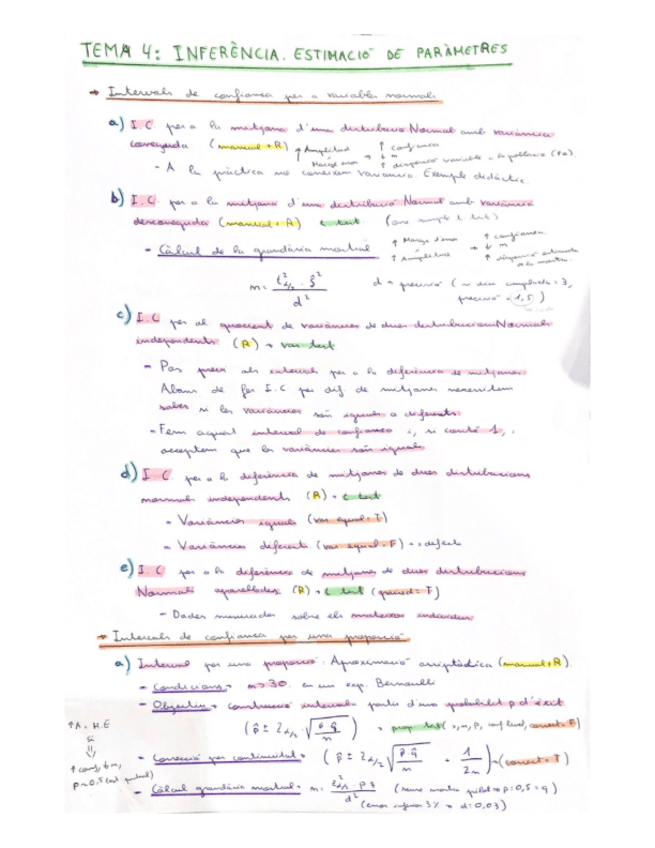 TEMA 4: INFERÈNCIA. ESTIMACIÓ DE PARÀMETRES
→ Intervals de confiança per a variables normals
a) I.C per a la mitjana d'una distribució Normal amb variància
coneguda (manual + R) ↑ Amplitud ↑ confiança
Marge error → ↓ m ↑ dispersió variable a la població
- A la pràctica no coneixem variància. Exemple didàctic.
b) I.C. per a la mitjana d'una distribució Normal amb variància
desconeguda (manual + R) t test (one sample t test)
- Càlcul de la grandària mostral ↑ Marge d'error ↑ confiança
↑ Amplitud → ↓ m ↑ dispersió estimada
a la mostra
d = precisió (si diu amplada = 3,
precisió = 1,5)
c) I.C per al quocient de variàncies de dues distribucions Normals
independents (R) → var test
- Pas previ als intervals per a la diferència de mitjanes
Abans de fer I.C per dif. de mitjanes necessitem
saber si les variàncies són iguals o diferents
- Fem aquest interval de confiança i, si conté 1,
acceptem que les variàncies són iguals
d) I C. per a la diferència de mitjanes de dues distribucions
normals independents (R) → t test
- Variàncies iguals (var equal = T)
- Variàncies diferents (var equal = F) → defecte
e) I.C per a la diferència de mitjanes de dues distribucions
Normals aparellades (R) → t test (paired = T)
- Dades mesurades sobre els mateixos individus
→ Intervals de confiança per una proporció
a) Interval per una proporció: Aproximació assimptòtica (manual + R)
- Condicions → n > 30 en un exp. Bernoulli
- Objectiu → construcció interval partir d'una probabilitat p d'èxit
prop test (x, m, p, conf level, correct = F)
- Correcció per continuïtat → (correct = T)
- Càlcul grandària mostral → (sense mostra pilot → p = 0,5 = q)
(error inferior 3% → d = 0,03)
↑ A. M.E
si
↑ conf, ↓ m,